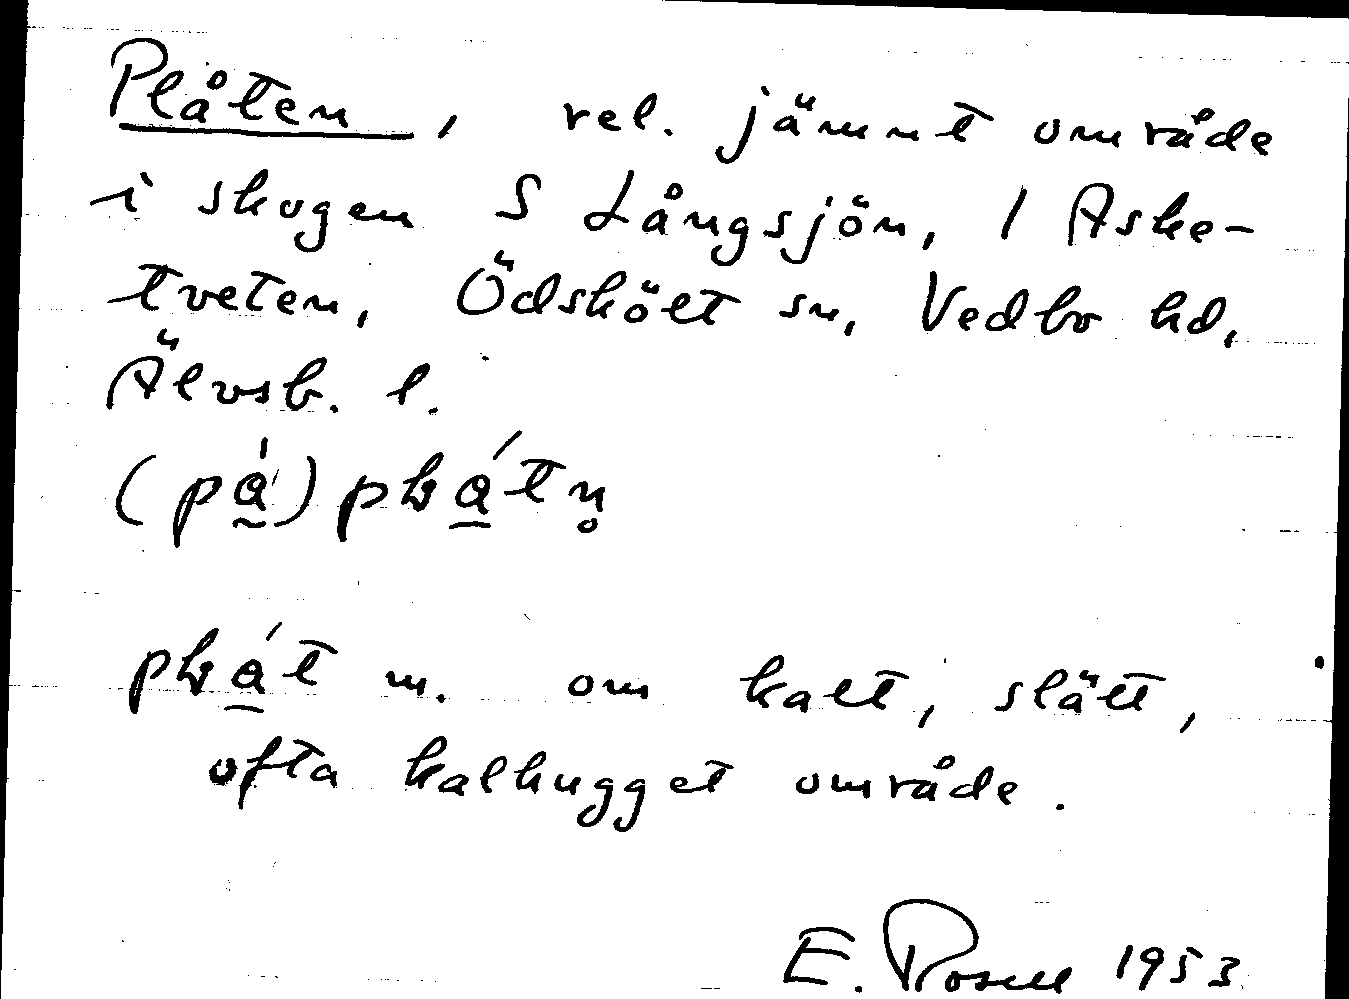 Plåten, rel. jämnt område
i skogen S Långsjön, 1 Aske-
tveten, Ödskölt sn, Vedbo hd,
Älvsb. l.
(på)
m. om kalt, slätt,
ofta kalhugget område.
E. Rosell 1953